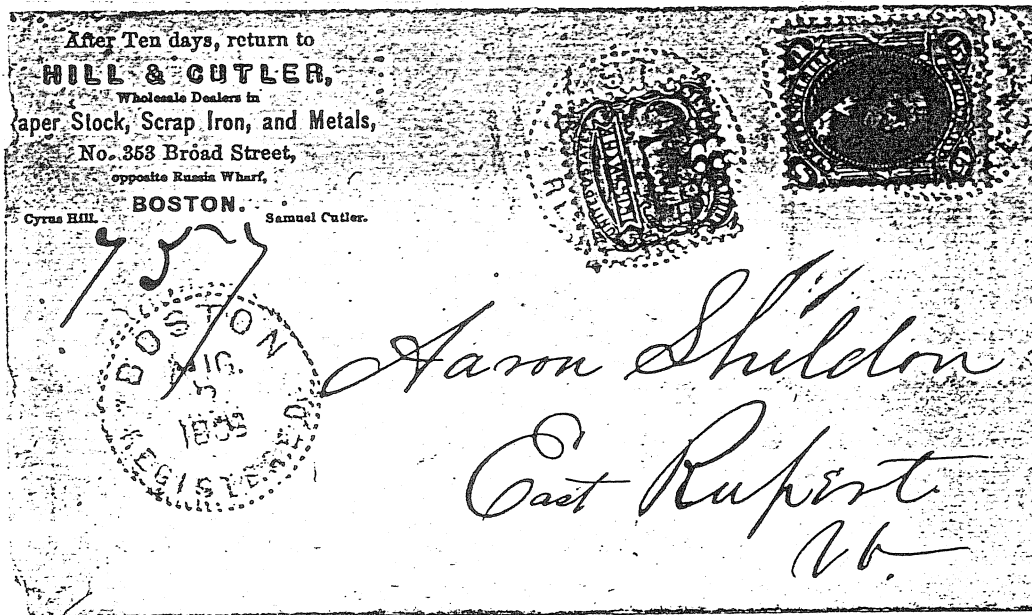 After Ten days, return to
HILL & CUTLER,
Wholesale Dealers in
aper Stock, Scrap Iron, and Metals,
No. 353 Broad Street,
opposite Russia Wharf,
BOSTON.
Cyrus Hill. Samuel Cutler.
757
BOSTON
5
REGISTERED
Aaron Sheldon
East Rupert
Vt.